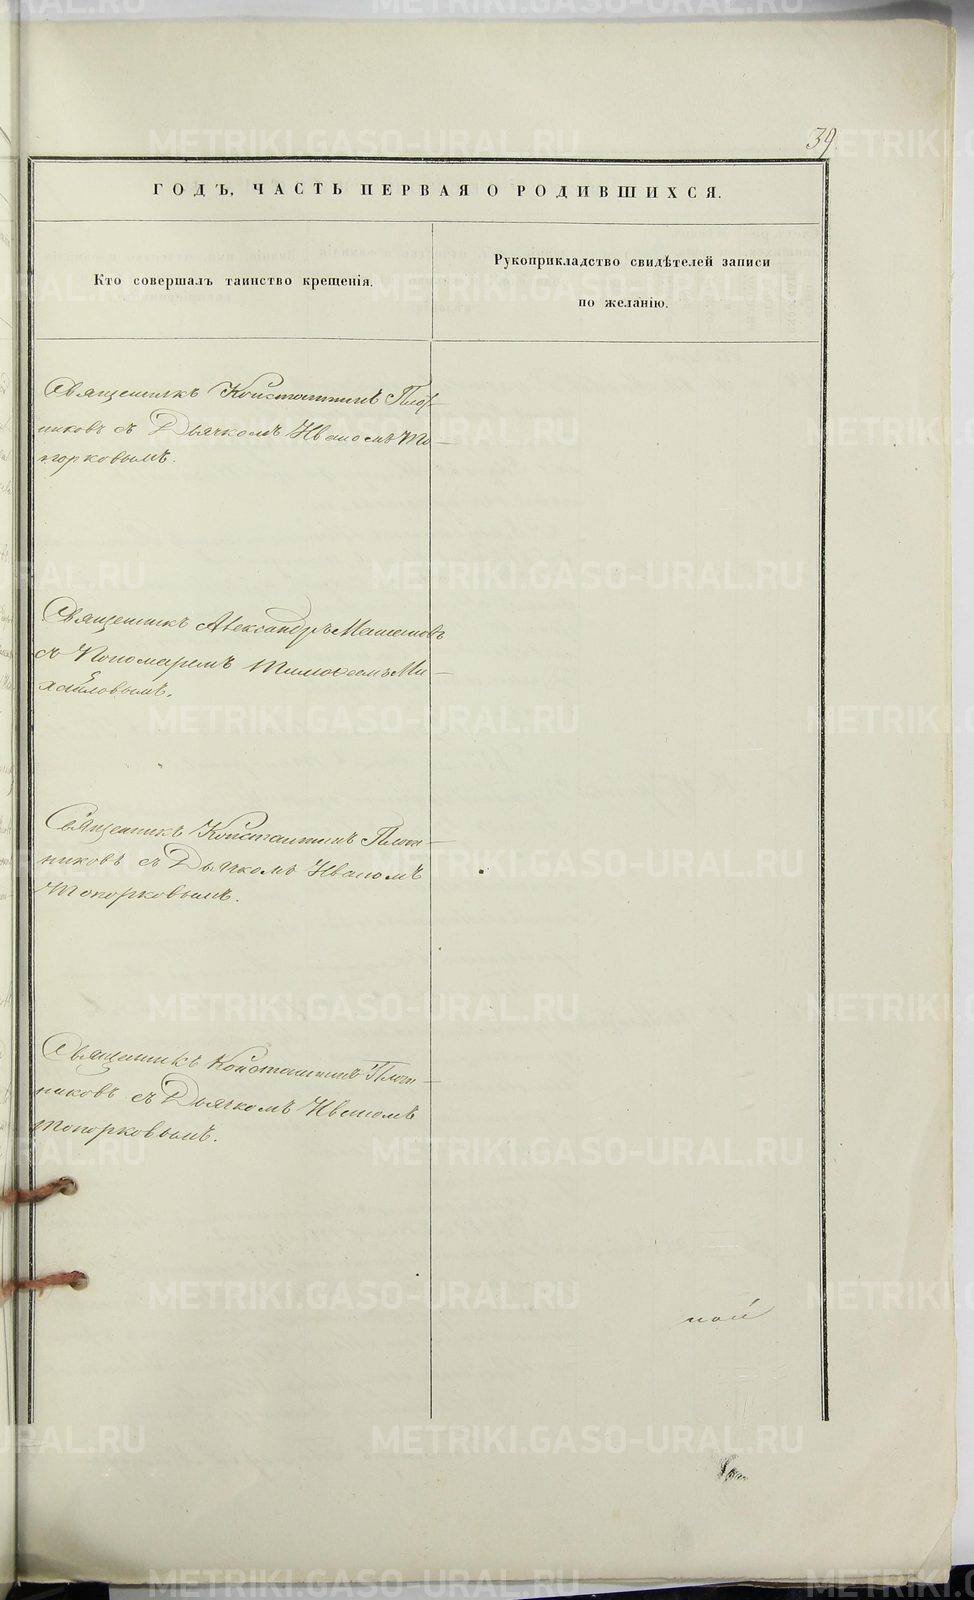 39
ГОДЪ, ЧАСТЬ ПЕРВАЯ О РОДИВШИХСЯ.
Кто совершалъ таинство крещенія.
Рукоприкладство свидѣтелей записи
по желанію.
Священникъ Константинъ Плот-
никовъ съ Дьячкомъ Иваномъ То-
порковымъ.
Священникъ Александръ
съ Пономаремъ Тимофеемъ Ми-
хайловымъ.
Священникъ Константинъ Плот-
никовъ съ Дьячкомъ Иваномъ
Топорковымъ.
Священникъ Константинъ Плот-
никовъ съ Дьячкомъ Иваномъ
Топорковымъ.
ной
METRIKI.GASO-URAL.RU